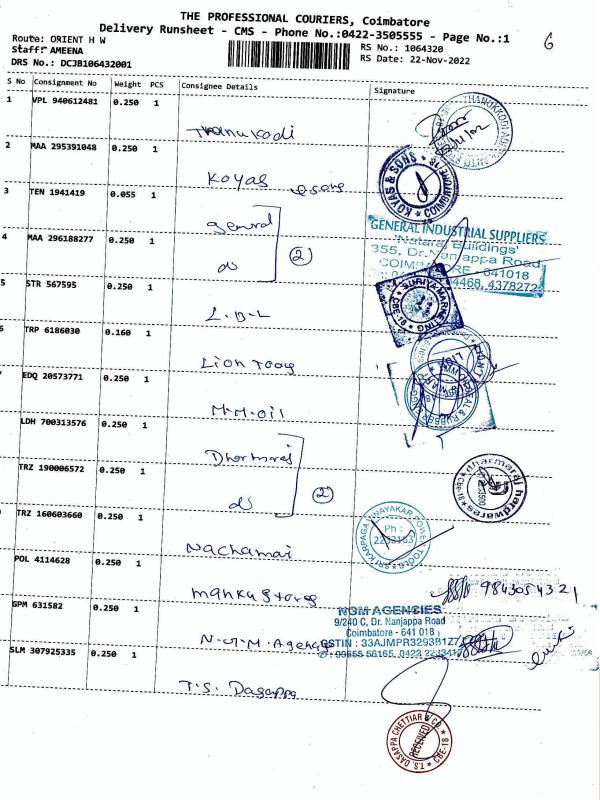 THE PROFESSIONAL COURIERS, Coimbatore
Delivery Runsheet - CMS - Phone No.:0422-3505555 - Page No.:1
6
Route: ORIENT H W
Staff: AMEENA
DRS No.: DCJB106432001
RS No.: 1064320
RS Date: 22-Nov-2022
S No Consignment No Weight PCS Consignee Details Signature
1 VPL 940612481 0.250 1 Thanukodi
2 MAA 295391048 0.250 1 Koyas & sons
KOYAS & SONS
3 TEN 1941419 0.055 1 general
GENERAL INDUSTRIAL SUPPLIERS
'Nataraj Buildings'
355, Dr. Nanjappa Road,
COIMBATORE - 641018
4468, 4378272
4 MAA 296188277 0.250 1 do (2)
5 STR 567595 0.250 1 L.B.L
SURIYA MARKETING
TRP 6186030 0.160 1 Lion Tools
EDQ 20573771 0.250 1 M.M.Oil
LDH 700313576 0.250 1 Dharmaraj
dharmaraj hardwares
TRZ 190006572 0.250 1 do (2)
TRZ 160603660 0.250 1 Nachamai
Ph :
POL 4114628 0.250 1 manku stores
9843054321
GPM 631582 0.250 1 N.G.M. Agencies
NGM AGENCIES
9/240 C, Dr. Nanjappa Road
Coimbatore - 641 018
SLM 307925335 0.250 1 T.S. Dasappa
T.S. DASAPPA CHETTIAR & CO.
RECEIVED
CBE-18